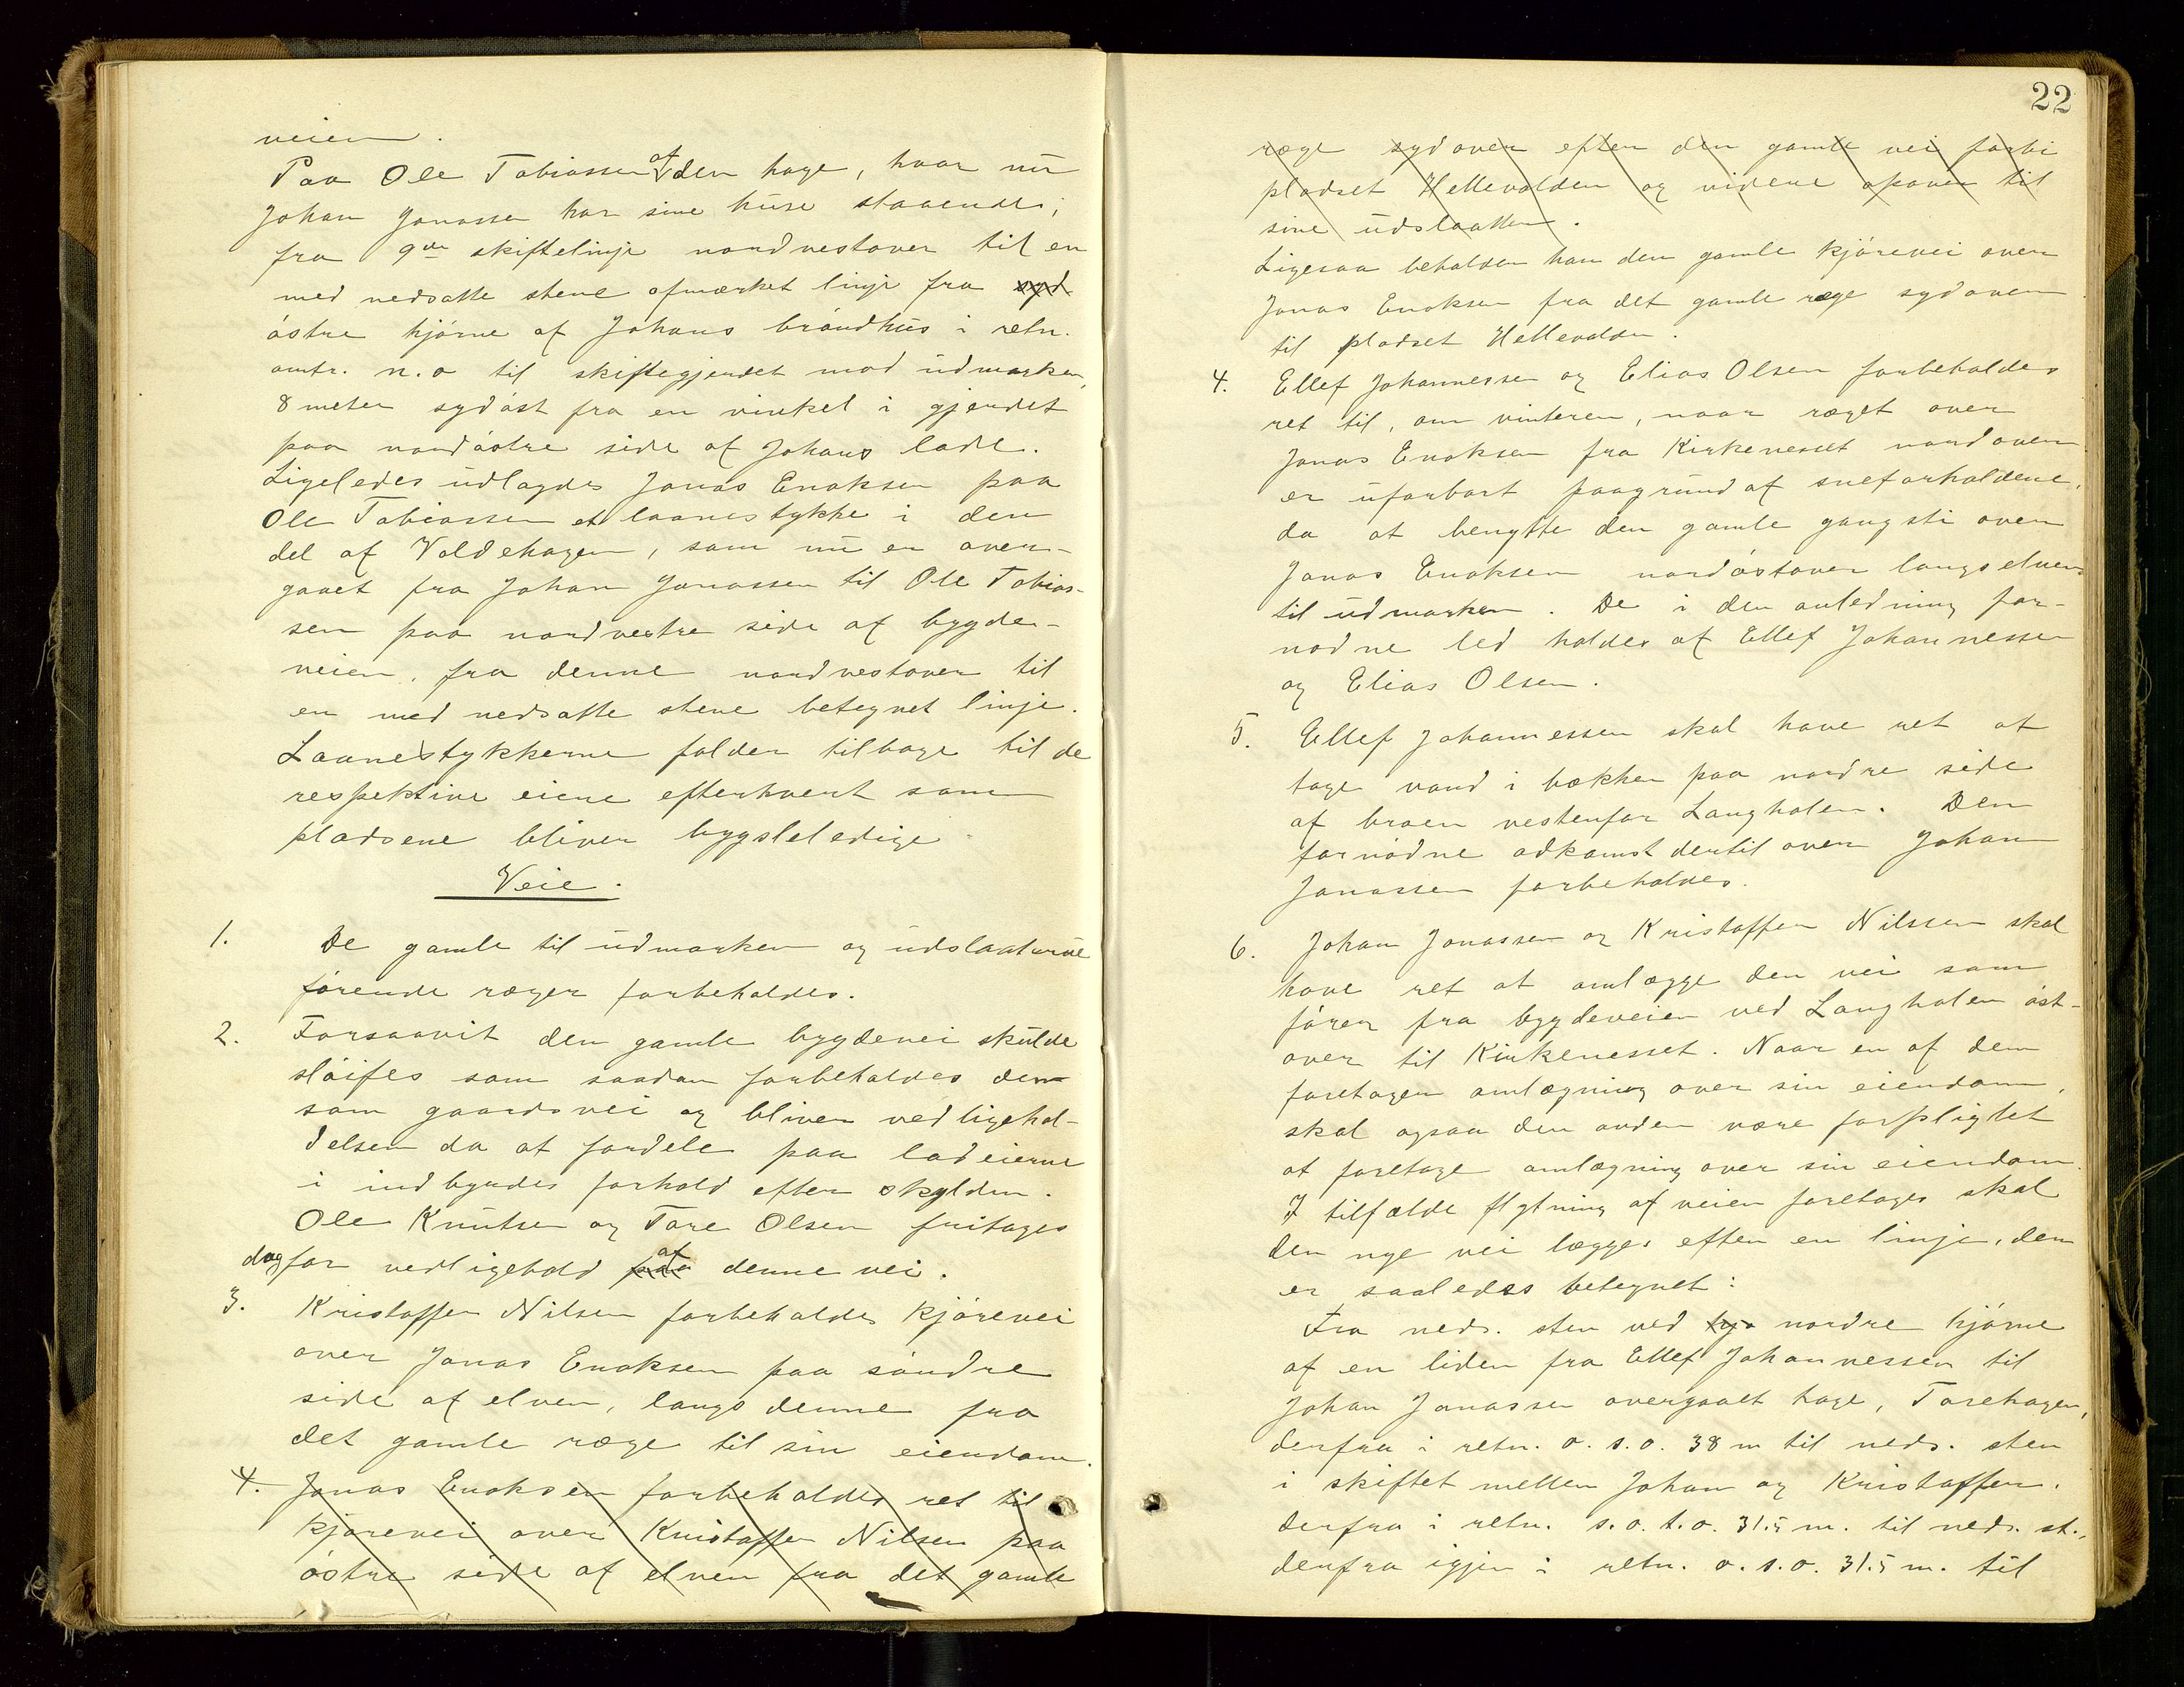 veien.
Paa Ole Tobiassen af den hage, hvor nu
Johan Jonassen har sine huse staaende;
fra 9de skiftelinje nordvestover til en
med nedsatte stene afmærket linje fra syd
östre hjörne af Johans bröndhus i retn.
omtr. n.o til skiftegjerdet mod udmarken,
8 meter sydöst fra en vinkel i gjerdet
paa nordöstre side af Johans lade.
Ligeledes udlagdes Jonas Enoksen paa
Ole Tobiassen et laanestykke i den
del af Voldehagen, som nu er over-
gaaet fra Johan Jonassen til Ole Tobias-
sen paa nordvestre side af bygde-
veien, fra denne nordvestover til
en med nedsatte stene betegnet linje.
Laanestykkerne falder tilbage til de
respektive eiere efterhvert som
pladsene bliver bygselledige
Veie.
1. De gamle til udmarken og udslaatterne
förende ræger forbeholdes.
2. Forsaavit den gamle bygdevei skulde
slöifes som saadan forbeholdes den
som gaardsvei og bliver vedligehol-
delsen da at fordele paa lodeierne
i indbyrdes forhold efter skylden.
Ole Knutsen og Tore Olsen fritages
dog for vedligehold paa af denne vei.
3. Kristoffer Nilsen forbeholdes kjörevei
over Jonas Enoksen paa söndre
side af elven, langs denne fra
det gamle ræge til sin eiendom.
4. Jonas Enoksen forbeholdes ret til
kjörevei over Kristoffer Nilsen paa
östre side af elven fra det gamle
22
ræge sydover efter den gamle vei forbi
pladset Hellevolden og videre opover til
sine udslaatter.
Ligesaa beholder han den gamle kjörevei over
Jonas Enoksen fra det gamle ræge sydover
til pladset Hellevolden.
4. Ellef Johannessen og Elias Olsen forbeholdes
ret til, om vinteren, naar ræget over
Jonas Enoksen fra Kirkenesset nordover
er ufarbart paagrund af sneforholdene,
da at benytte den gamle gangsti over
Jonas Enoksen nordöstover langs elven
til udmarken. De i den anledning for-
nødne led holdes af Ellef Johannessen
og Elias Olsen.
5. Ellef Johannessen skal have ret at
tage vand i bækken paa nordre side
af broen vestenfor Langholen. Den
fornødne adkomst dertil over Johan
Jonassen forbeholdes.
6. Johan Jonassen og Kristoffer Nilssen skal
have ret at omlægge den vei som
förer fra bygdeveien ved Langholen öst-
over til Kirkenesset. Naar en af dem
foretager omlægning over sin eiendom,
skal ogsaa den anden være forpligtet
at foretage omlægning over sin eiendom.
I tilfælde flytning af veien foretages skal
den nye vei lægges efter en linje, der
er saaledes betegnet:
Fra neds. sten ved hjø nordre hjörne
af en liden fra Ellef Johannessen til
Johan Jonassen overgaaet hage, Torehagen,
derfra i retn. o. s.o. 38 m til neds. sten
i skiftet mellem Johan og Kristoffer.
derfra i retn. s.o. t.o. 31.5 m. til neds. st.,
derfra igjen i retn. o.s.o. 31.5 m. til